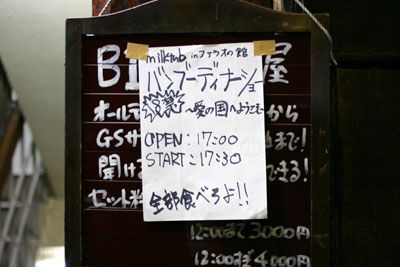 milktub in ファラオの館
バンブーディナーショー
〜愛の国へようこそ〜
OPEN:17:00
START:17:30
全部食べろよ!!
屋
オールデ から
GSサ まで!
聞け できる!
セット料
12:00まで3000円
12:00 4000円